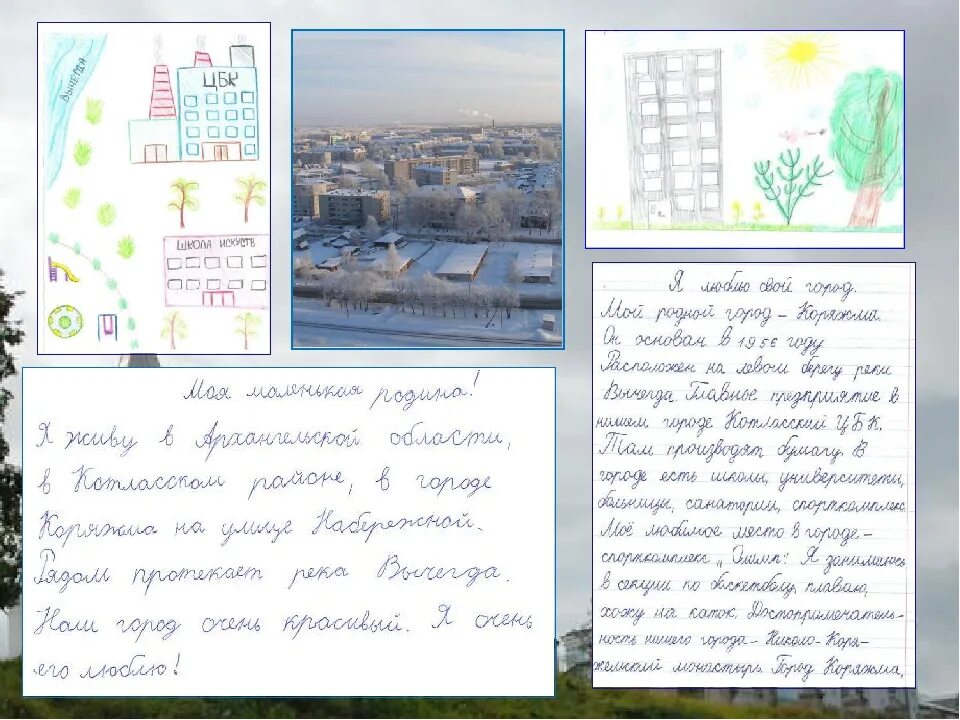 ВЫЧЕГДА
ЦБК
ШКОЛА ИСКУСТВ
Моя маленькая родина!
Я живу в Архангельской области,
в Котласском районе, в городе
Коряжма на улице Набережной.
Рядом протекает река Вычегда.
Наш город очень красивый. Я очень
его люблю!
Я люблю свой город.
Мой родной город – Коряжма.
Он основан в 1956 году
Расположен на левом берегу реки
Вычегда. Главное предприятие в
нашем городе Котласский ЦБК.
Там производят бумагу. В
городе есть школы, университеты,
больницы, санатории, спорткомплекс
Моё любимое место в городе –
спорткомплекс „Олимп". Я занимаюсь
в секции по баскетболу, плаваю,
хожу на каток. Достопримечатель-
ность нашего города – Николо-Коря-
жемский монастырь. Город Коряжма,